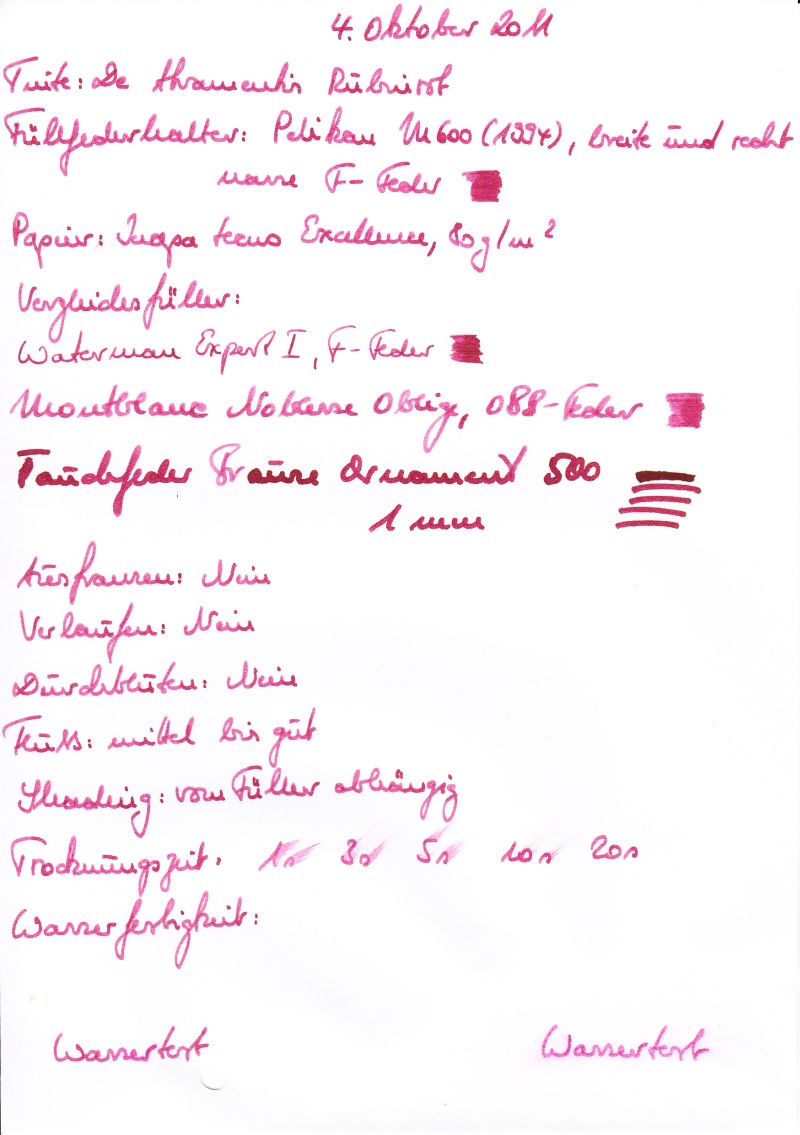 4. Oktober 2011
Tinte: De Atramentis Rubinrot
Füllfederhalter: Pelikan M600 (1994), breite und recht
nasse F-Feder
Papier: Inapa tecno Excellence, 80g/m²
Vergleichsfüller:
Waterman Expert I, F-Feder
Montblanc Noblesse Oblige, OBB-Feder
Tauchfeder Brause Ornament 500
1 mm
Ausfransen: Nein
Verlaufen: Nein
Durchbluten: Nein
Fluss: mittel bis gut
Shading: vom Füller abhängig
Trocknungszeit: 1s 3s 5s 10s 20s
Wasserfestigkeit:
Wassertest Wassertest